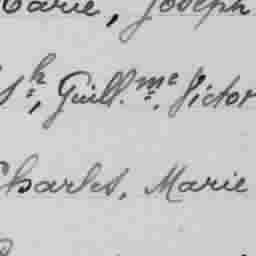 Marie, Joseph
Jh, Guill.me Victor
Charles, Marie